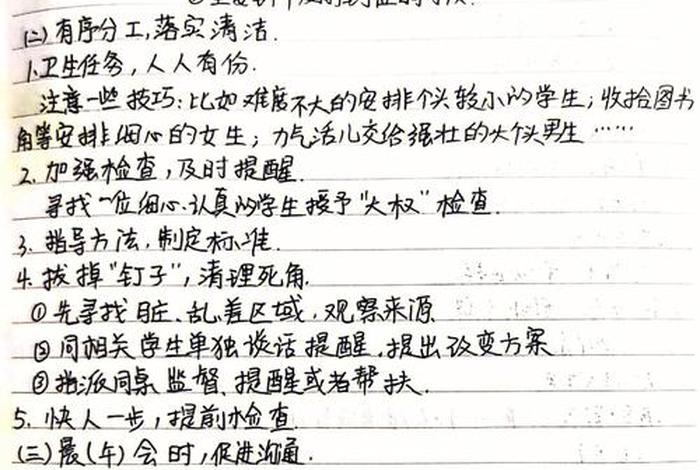 (二)有序分工,落实清洁.
1.卫生任务,人人有份.
注意一些技巧:比如难度不大的安排个头较小的学生;收拾图书
角等安排细心的女生;力气活儿交给强壮的大个头男生……
2.加强检查,及时提醒.
寻找一位细心、认真的学生授予“大权”检查.
3.指导方法,制定标准.
4.拔掉“钉子”,清理死角.
①先寻找脏、乱、差区域,观察来源
②同相关学生单独谈话提醒,提出改变方案
③指派同桌监督、提醒或者帮扶.
5.快人一步,提前检查.
(三)晨(午)会时,促进沟通.